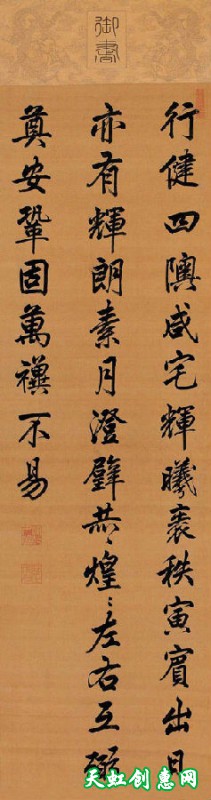 御書
行健四隩咸宅輝曦秩寅賓出日
亦有輝朗素月澄璧煌〻左右互弼
奠安鞏固萬禩不易
天虹创惠网